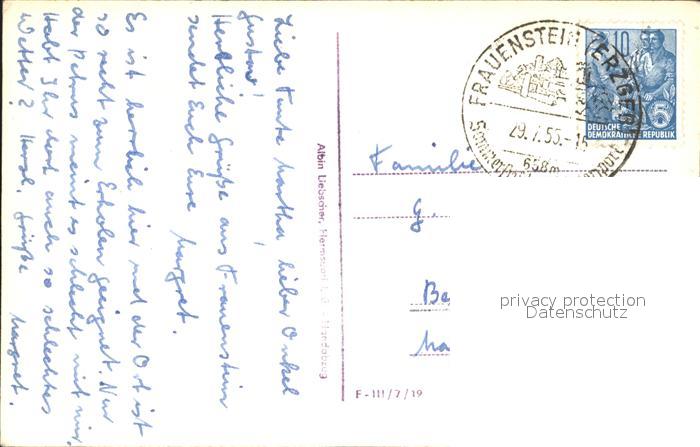 Liebe Tante Martha lieber Onkel
Gustav!
Herzliche Grüße aus Frauenstein
sendet Euch Eure Margret.
Es ist herrlich hier und der Ort ist
so recht zum Erholen geeignet. Nur
der Petrus meint es schlecht mit mir.
Habt Ihr dort auch so schlechtes
Wetter? Herzl. Grüße Margret.
Albin Liebscher, Hermsdorf
F-III/7/19
FRAUENSTEIN (ERZGEB
29.7.55.-15
658m
10
5
DEUTSCHE
DEMOKRATISCHE REPUBLIK
Familie
G.
Be
Ha
privacy protection
Datenschutz